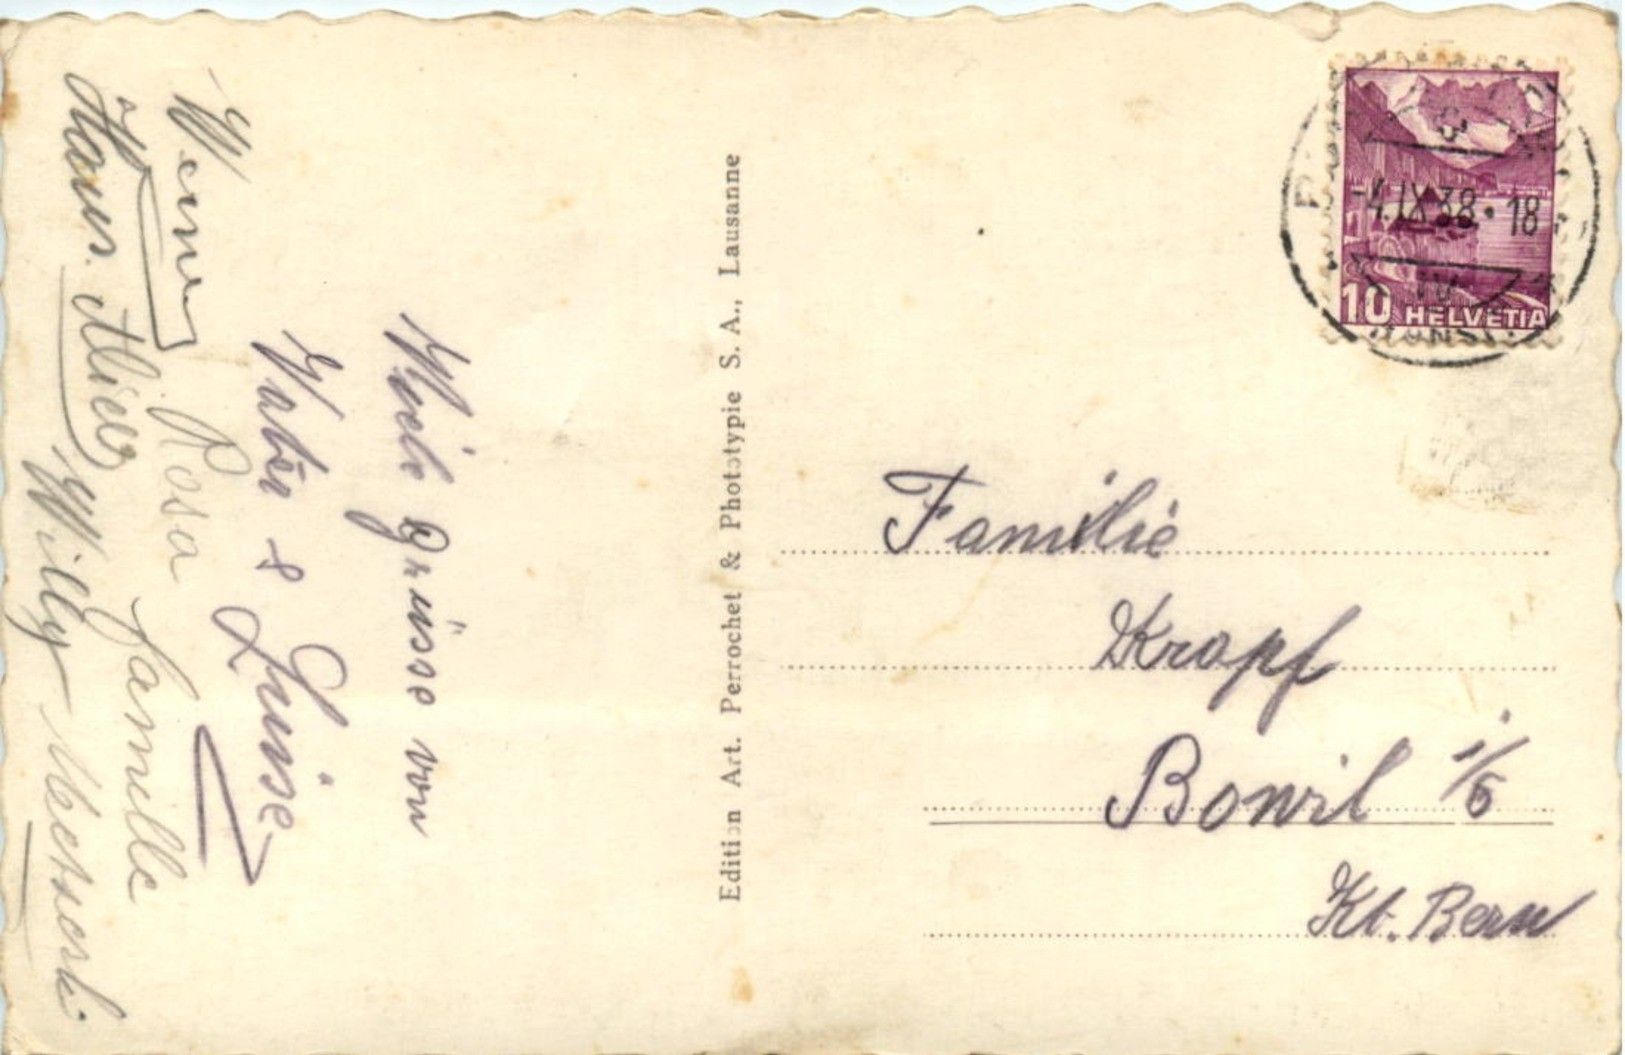 Viele Grüsse von
Vater & Luise
Werner Rosa Camille
Hans. Miew Willy
Edition Art. Perrochet & Phototypie S. A., Lausanne
-4.IX.38. 18
10 HELVETIA
Familie
Kropf
Bowil i/E
Kt. Bern